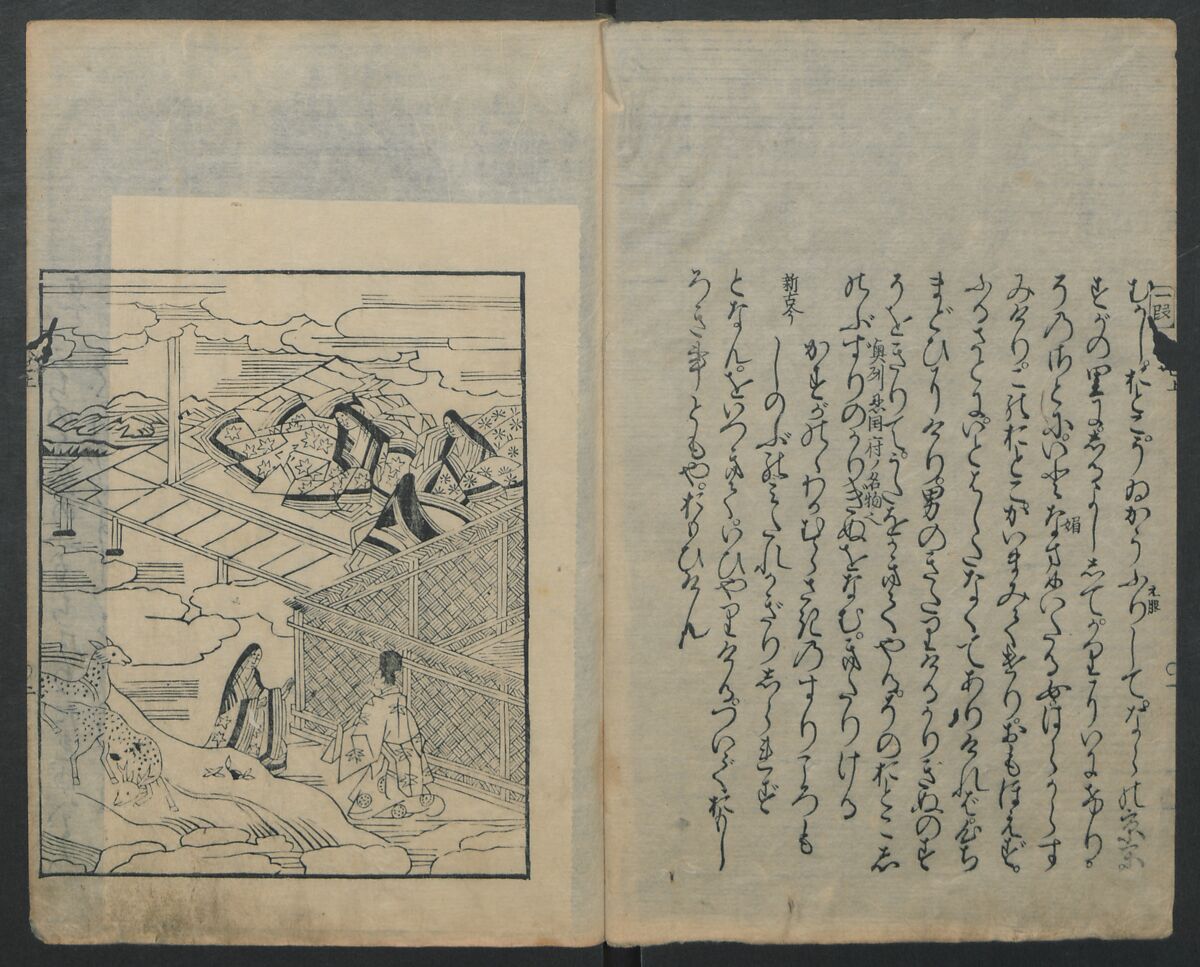 一段
むかし。おとこ。うゐかうふりして。ならの京。
元服
かすがの里にしるよしして。かりにいにけり。
そのさとに。いとなまめいたる女はらからす
媚
みけり。このおとこかいまみてけり。おもほえず。
ふるさとに。いとはしたなくてありければ。心ち
まどひにけり。男のきたりけるかりぎぬのす
そをきりて。うたをかきてやる。そのおとこし
奥州忍国府ノ名物也
のぶずりのかりぎぬをなむ。きたりける
かすがのゝわかむらさきのすりごろも
新古今
しのぶのみだれかぎりしられず
となん。をいつきて。いひやりける。ついでおもし
ろき事ともや。おもひけん